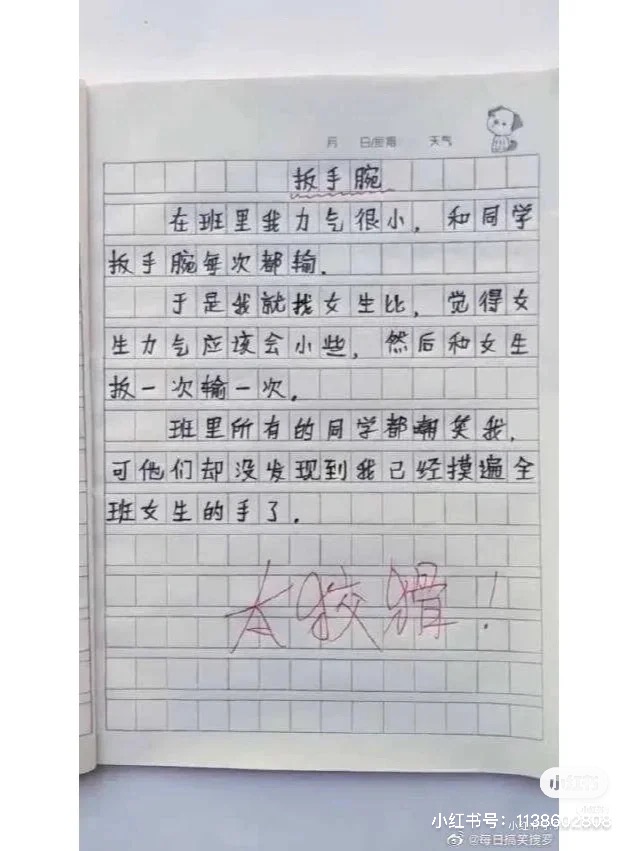 月 日/星期 天气
扳手腕
在班里我力气很小，和同学
扳手腕每次都输．
于是我就找女生比，觉得女
生力气应该会小些，然后和女生
扳一次输一次．
班里所有的同学都朝笑我，
可他们却没发现到我已经摸遍全
班女生的手了．
太狡猾！
小红书
小红书号：1138602808
@每日搞笑搜罗